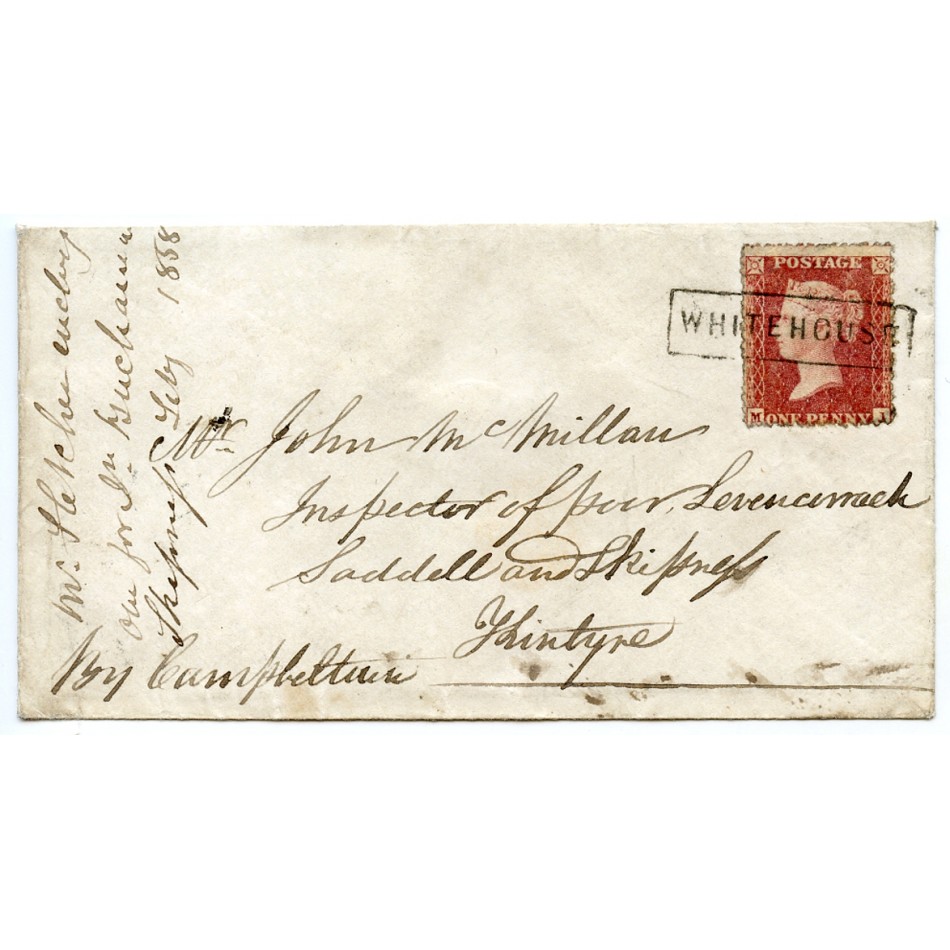 POSTAGE
WHITEHOUSE
M ONE PENNY
Mr. John McMillan
Inspector of poor,
Saddell and Skipness
Kintyre
By Campbeltown
Mr.
for Dr Buchanan
Skipness Feby 1858